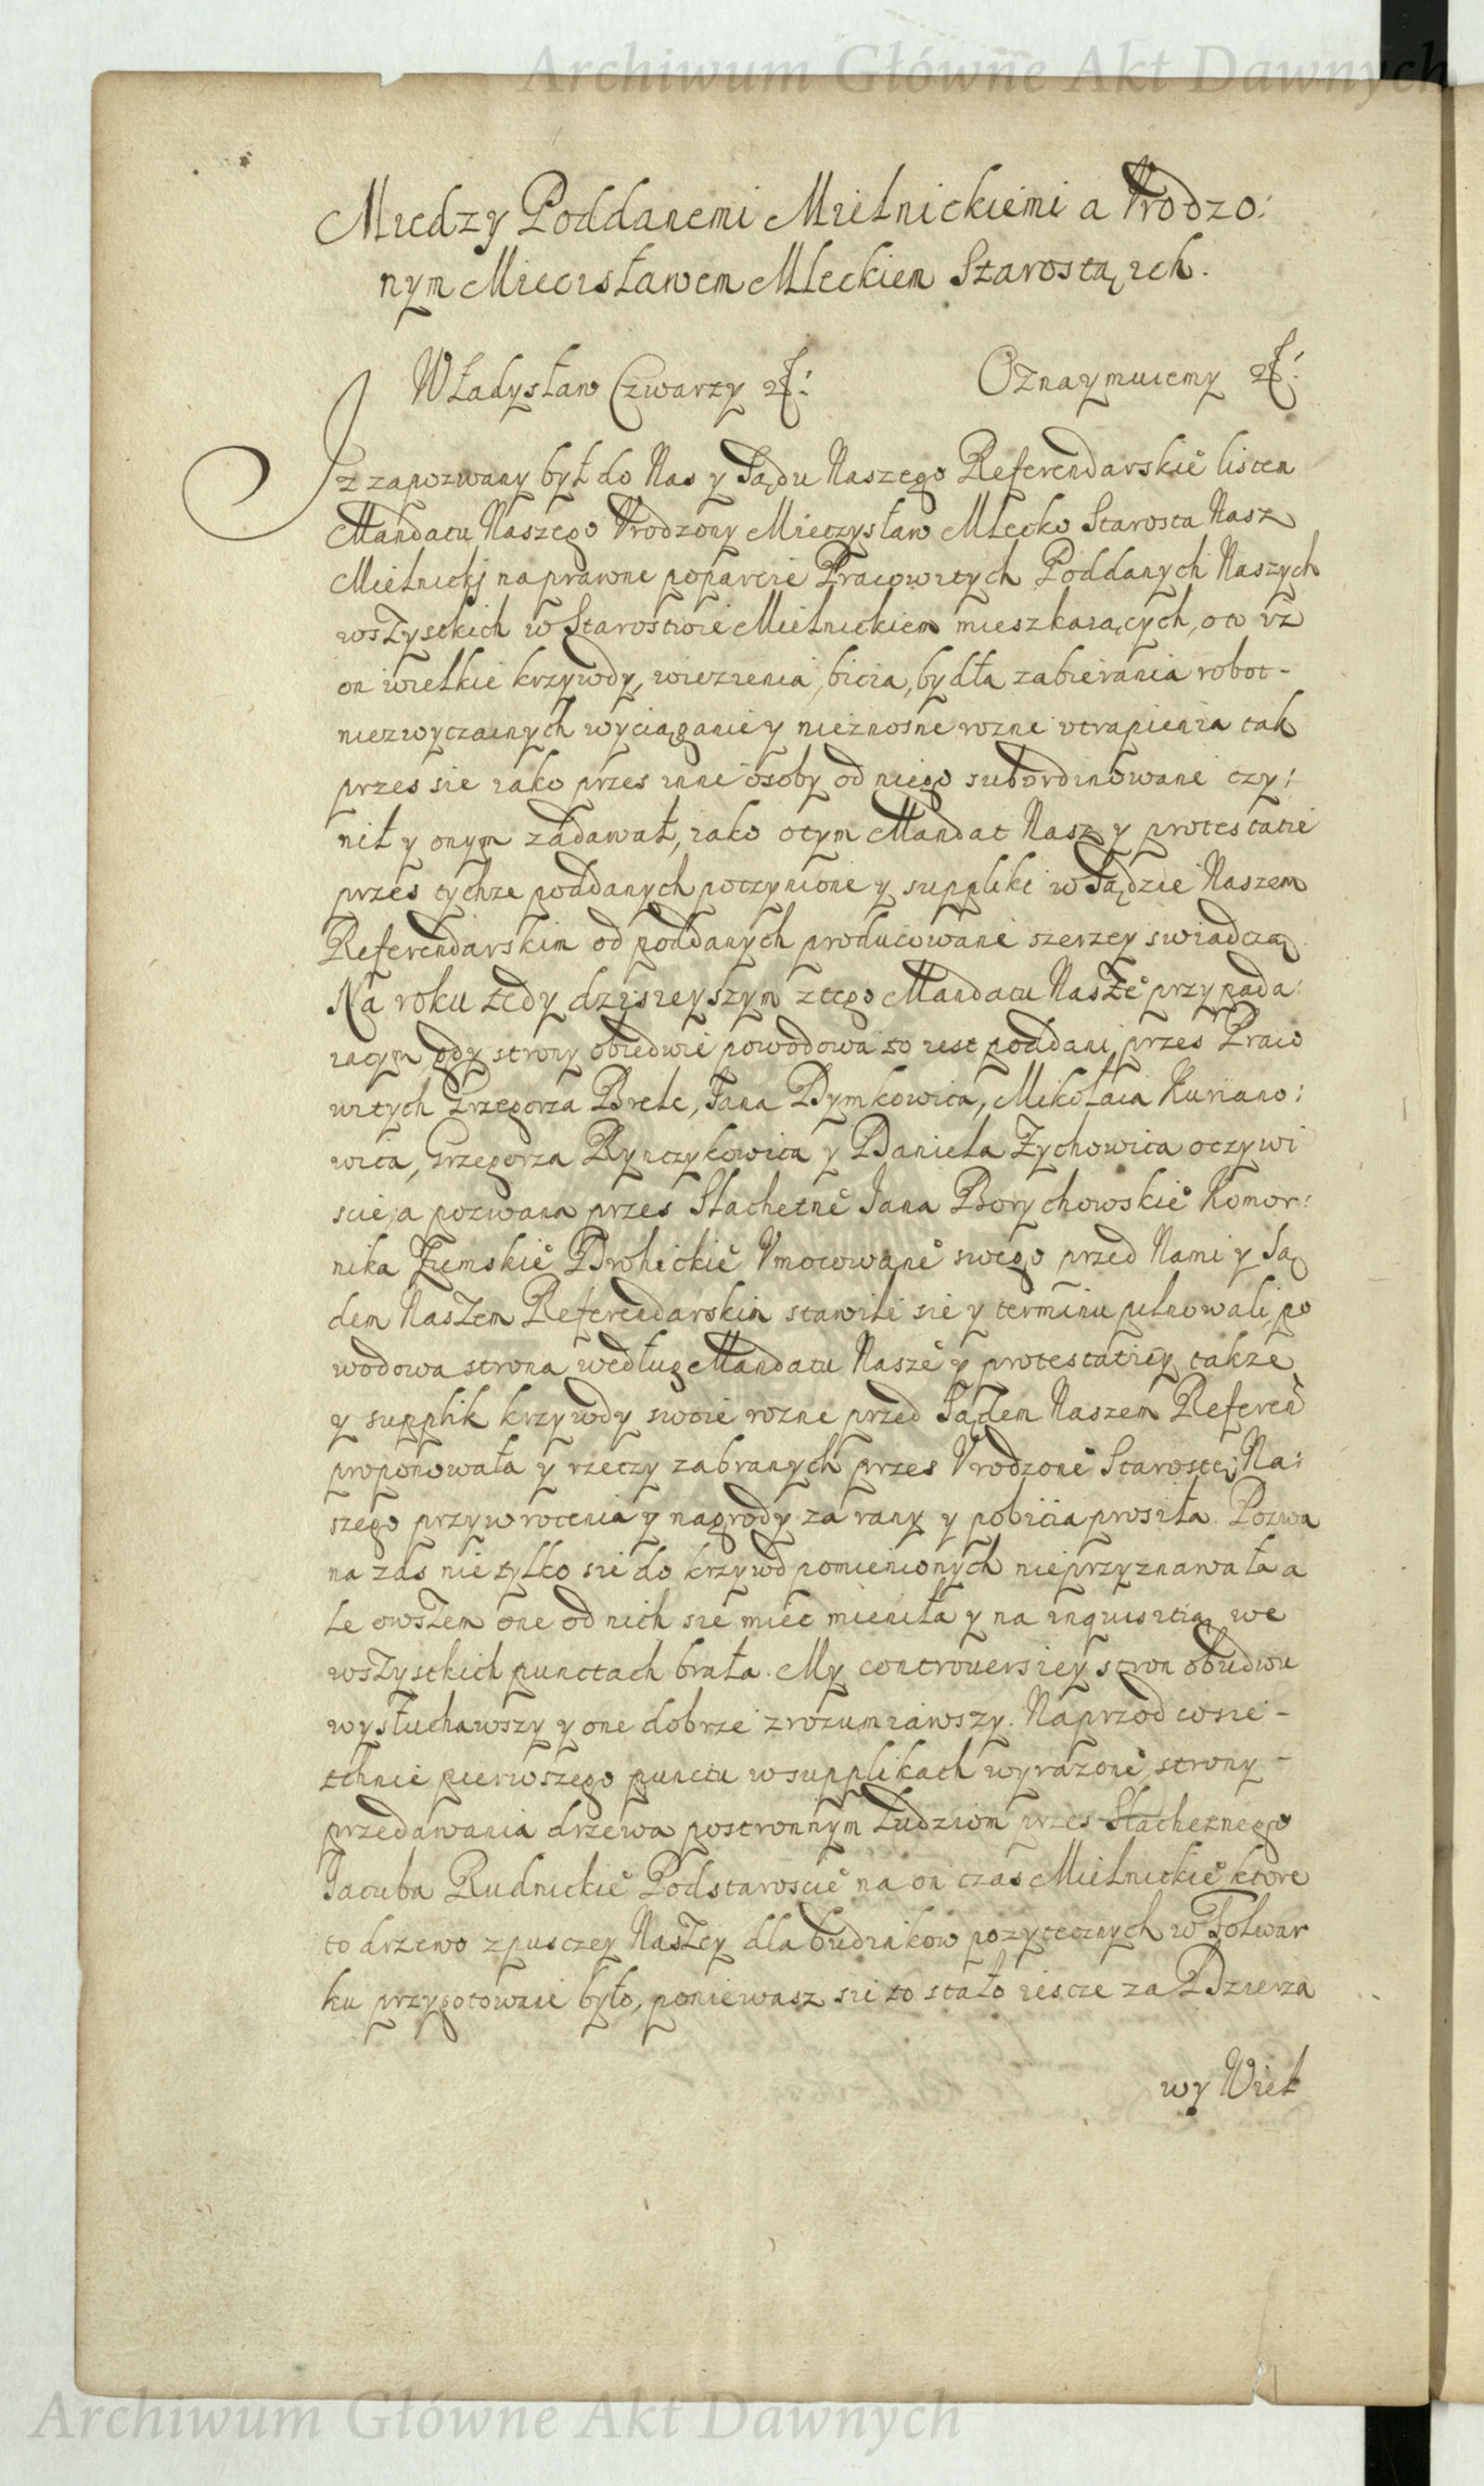 Archiwum Główne Akt Dawnych
Miedzy Poddanemi Mielnickiemi a Vrodzo:
nym Miecisławem Mleckiem Starostą ich.
Władysław Czwarty etc: Oznaymuiemy etc:
Iz zapozwany był do Nas y Sądu Naszego Referendarskie° listem
Mandatu Naszego Vrodzony Mieczysław Mlecko Starosta Nasz
Mielnickj na prawne poparcie Pracowitych Poddanych Naszych
wszystkich w Starostwie Mielnickiem mieszkaiących, oto iz
on wielkie krzywdy, wiezienia, bicia, bydła zabierania robot-
niezwyczainych wyciąganie y nieznosne rozne vtrapienia tak
przes sie iako przes inne osoby od niego subordinowane czy:
nił y onym zadawał, iako otym Mandat Nasz y protestatie
przes tychze poddanych poczynione y suppliki w Sądzie Naszem
Referendarskim od poddanych producowane szerzey swiadczą
Na roku tedy dzisieyszym z tego Mandatu Nasze° przypada:
iacym gdy strony obiedwie powodowa to iest poddani przes Praco
witych Grzegorza Brele, Jana Dymkowica, Mikołaia Kuriano:
wica, Grzegorza Rynczykowica y Daniela Zychowica oczywi
scie, a pozwana przes Slachetne° Jana Borychowskie° Komor:
nika Ziemskie° Drohickie° Vmocowane° swego przed Nami y Są
dem Naszem Referendarskim stawili sie y terminu pilnowali, po
wodowa strona według Mandatu Nasze° y protestatiey takze
y supplik krzywdy swoie rozne przed Sądem Naszem Referen
proponowała y rzeczy zabranych przes Vrodzone° Staroste Na:
szego przywrocenia y nagrody za rany y pobicia prosiła. Pozwa
na zas nie tylko sie do krzywd pomienionych nieprzyznawała a
le owszem one od nich sie miec mieniła y na inquisitią we
wszystkich punctach brała. My controuersiey stron obudwu
wysłuchawszy y one dobrze zrozumiawszy. Naprzod co sie-
tchnie pierwszego punctu w supplikach wyrazone° strony-
przedawania drzewa postronnym Ludziom przes Slachetnego
Jacuba Rudnickie° Podstaroscie° na on czas Mielnickie° ktore
to drzewo z pusczey Naszey dla budinkow pozytecznych w Folwar
ku przygotowane było, poniewasz sie to stało iescze za Dzierza
wy Wiel
Archiwum Główne Akt Dawnych